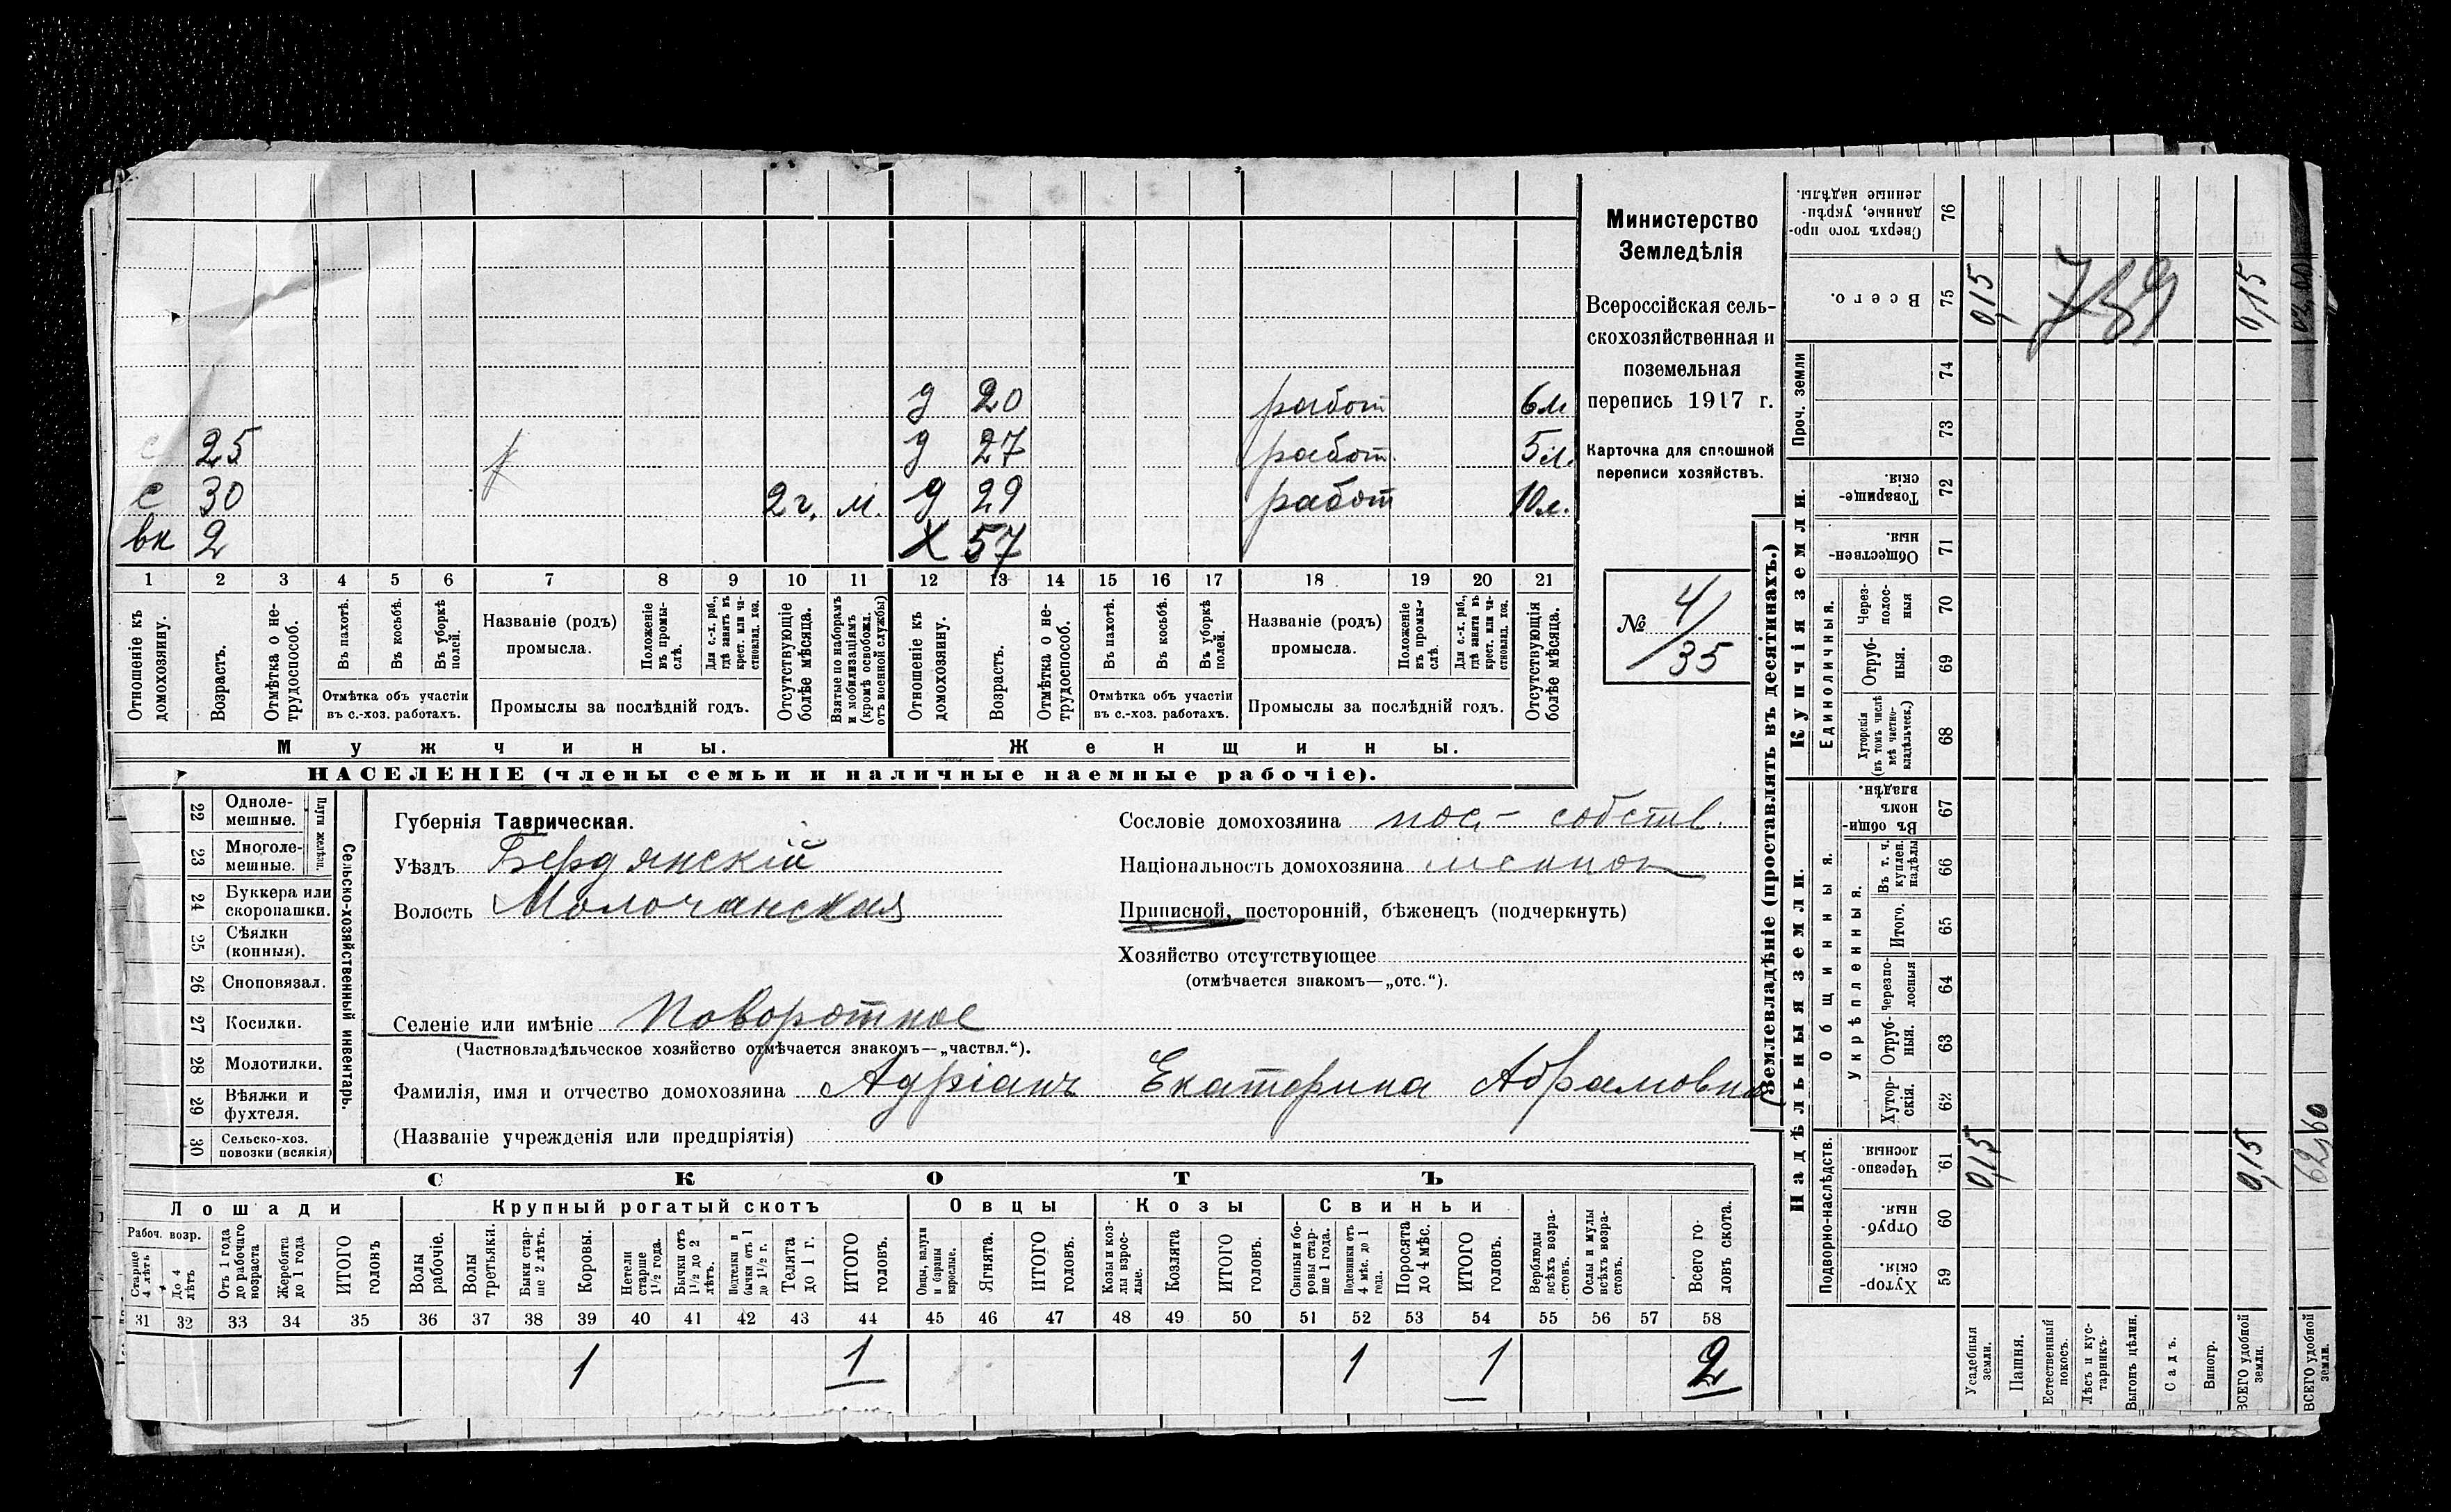 Министерство
Земледѣлія
Всероссійская сель-
скохозяйственная и
поземельная
перепись 1917 г.
Карточка для сплошной
переписи хозяйствъ.
№ 4/35
д 20 работ 6 м
25 д 27 работ. 5 м.
с 30 2 г. м. д 29 работ 10 м.
вк 2 х 57
1 2 3 4 5 6 7 8 9 10 11 12 13 14 15 16 17 18 19 20 21
Отношеніе къ домохозяину.
Возрастъ.
Отмѣтка о не-трудоспособ.
Въ пахотѣ.
Въ косьбѣ.
Въ уборкѣ полей.
Отмѣтка объ участіи
въ с.-хоз. работахъ.
Названіе (родъ)
промысла.
Положеніе въ промы-слѣ.
Для с.-х. раб., гдѣ занятъ въ крест. или ча-стновлад. хоз.
Промыслы за послѣдній годъ.
Отсутствующіе болѣе мѣсяца.
Взятые по наборамъ и мобилизаціямъ (кромѣ освобожд. отъ военной службы)
Отношеніе къ домохозяину.
Возрастъ.
Отмѣтка о не-трудоспособ.
Въ пахотѣ.
Въ косьбѣ.
Въ уборкѣ полей.
Отмѣтка объ участіи
въ с.-хоз. работахъ.
Названіе (родъ)
промысла.
Положеніе въ промы-слѣ.
Для с.-х. раб., гдѣ занята въ крест. или ча-стновлад. хоз.
Промыслы за послѣдній годъ.
Отсутствующія болѣе мѣсяца.
Мужчины. Женщины.
НАСЕЛЕНІЕ (члены семьи и наличные наемные рабочіе).
Сельско-хозяйственный инвентарь.
Плуги желѣзн.
22 Одноле-мешные.
23 Многоле-мешные.
24 Буккера или скоропашки.
25 Сѣялки (конныя).
26 Сноповязал.
27 Косилки.
28 Молотилки.
29 Вѣялки и фухтеля.
30 Сельско-хоз. повозки (всякія)
Губернія Таврическая.
Уѣздъ Бердянскій
Волость Молочанская
Селеніе или имѣніе Поворотное
(Частновладѣльческое хозяйство отмѣчается знакомъ—„частвл.“).
Фамилія, имя и отчество домохозяина Адріанъ Екатерина Абрамовна
(Названіе учрежденія или предпріятія)
Сословіе домохозяина пос.- собств.
Національность домохозяина
Приписной, посторонній, бѣженецъ (подчеркнуть)
Хозяйство отсутствующее
(отмѣчается знакомъ—„отс.“).
СКОТЪ
Лошади Крупный рогатый скотъ Овцы Козы Свиньи
Рабоч. возр.
Старше 4 лѣтъ
До 4 лѣтъ
Отъ 1 года до рабочаго возраста
Жеребята до 1 года
ИТОГО головъ
Волы рабочіе.
Волы третьяки.
Быки стар-ше 2 лѣтъ.
Коровы.
Нетели старше 1½ года.
Бычки отъ 1½ до 2 лѣтъ.
Подтелки и бычки отъ 1 до 1½ г.
Телята до 1 г.
ИТОГО головъ.
Овцы, валухи и бараны взрослые.
Ягнята.
ИТОГО головъ.
Козы и коз-лы взрос-лые.
Козлята
ИТОГО головъ.
Свиньи и бо-ровы стар-ше 1 года.
Подсвинки отъ 4 мѣс. до 1 года.
Поросята до 4 мѣс.
ИТОГО головъ.
Верблюды всѣхъ возра-стовъ.
Ослы и мулы всѣхъ возра-стовъ.
Всего го-ловъ скота.
31 32 33 34 35 36 37 38 39 40 41 42 43 44 45 46 47 48 49 50 51 52 53 54 55 56 57 58
1 1 1 1 2
Землевладѣніе (проставлять въ десятинахъ.)
Надѣльныя земли. Купчія земли.
Подворно-наслѣдств.
Общинныя.
Укрѣпленныя.
Единоличныя.
Проч. земли
Хутор-скія. 59
Отруб-ныя. 60
Черезпо-лосныя. 61
Хутор-скія. 62
Отруб-ныя. 63
Черезпо-лосныя 64
Итого. 65
Въ т. ч. куплен. надѣлы 66
Въ общи-номъ владѣн. 67
Хуторскія (въ томъ числѣ всѣ частно-владѣльческ.) 68
Отруб-ныя. 69
Через-полос-ныя 70
Обществен-ныя. 71
Товарище-скія. 72
73
74
Всего. 75
Сверхъ того про-данные, укрѣп-ленные надѣлы. 76
Усадебныя земли. 0,15 0,15
Пашня.
Естественный покосъ.
Лѣсъ и кус-тарникъ.
Выгонъ цѣлин.
Садъ.
Виногр.
ВСЕГО удобной земли. 0,15 0,15
ВСЕГО удобной земли. 62,60